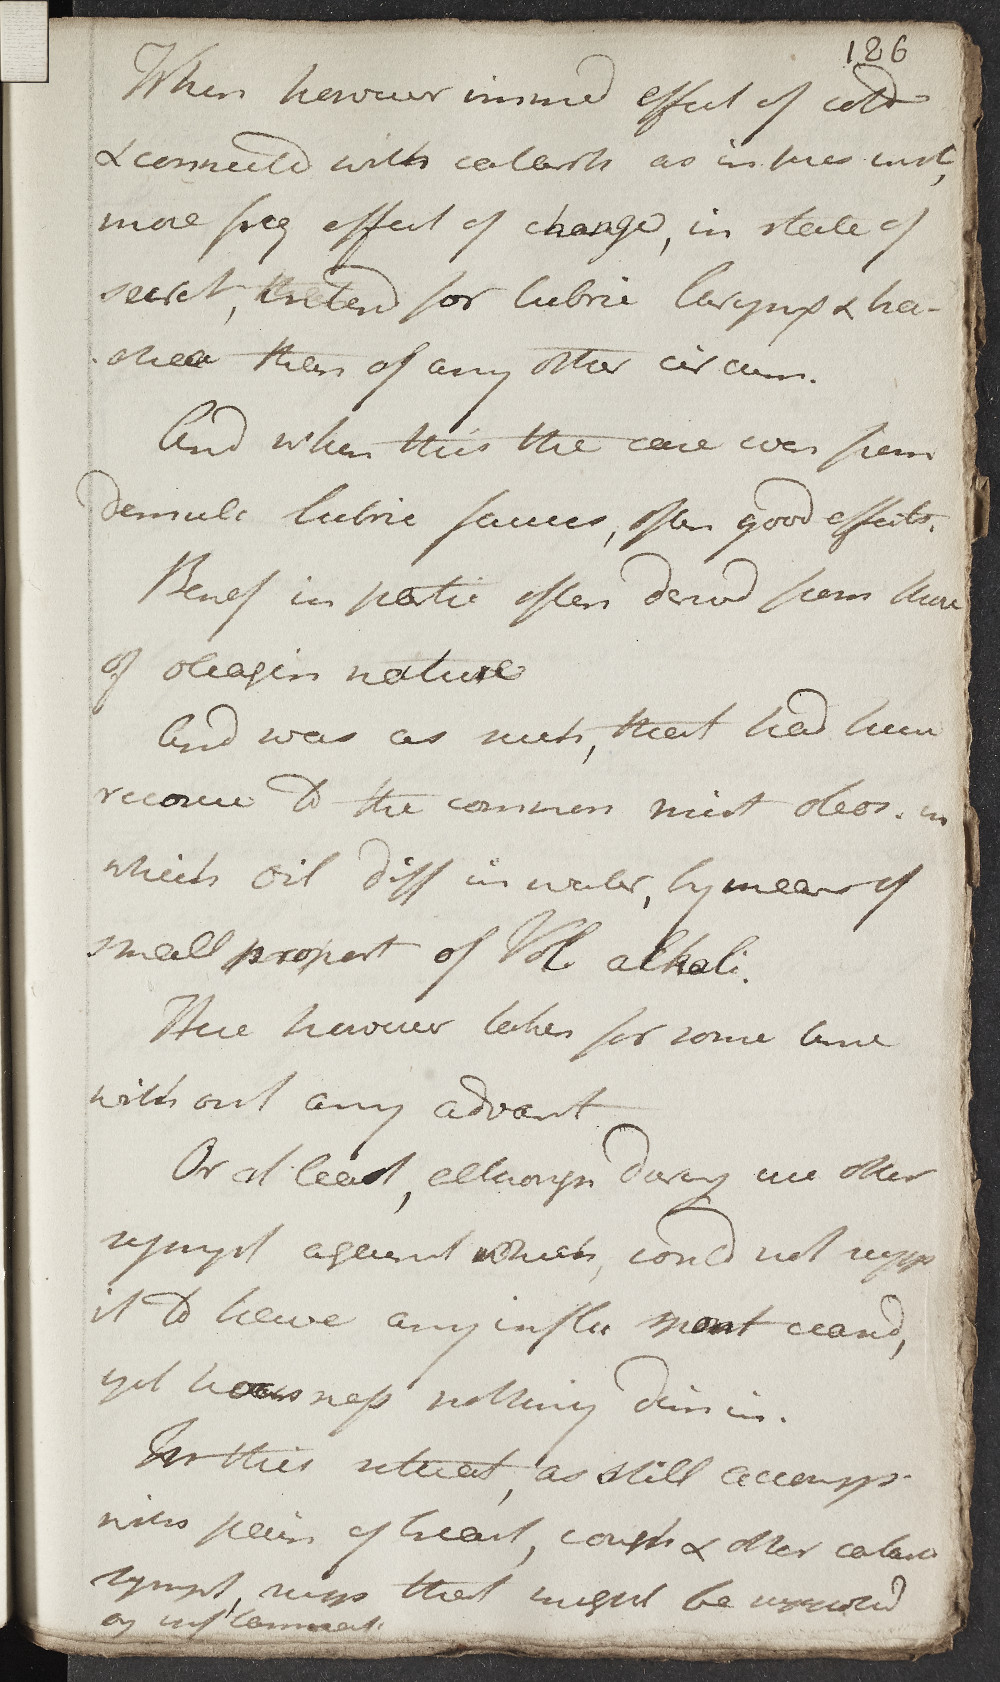 186
When however immed effect of cold
& connected with catarrh as in pres inst,
more freq effect of change, in state of
secret, intend for lubric larynx & tra-
chea than of any other circum.
And when this the case were from
demulc lubric fauces, often good effects.
Benef in partic often derived from those
of oleagin nature
And was as such, that had here
recourse to the common mist oleos. in
which oil diff in water, by means of
small proport of Vol alkali.
This however taken for some time
without any advant
Or at least, although during use other
sympt against which, could not supp
it to have any influ
yet hoarsness nothing dimin.
In this situat, as still accomp
with pain of breast, cough & other catarr
sympt, supp that might be
by inflammat.